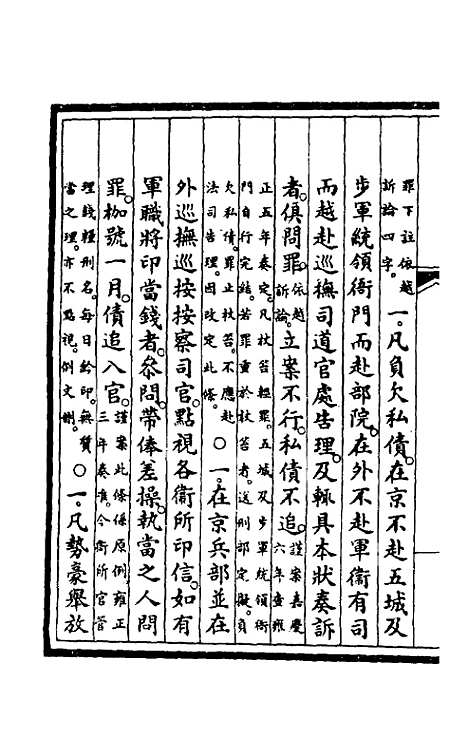 罪下註依越
訴論四字。
一。凡負欠私債。在京不赴五城及
步軍統領衙門而赴部院。在外不赴軍衛有司
而越赴巡撫司道官處告理。及輒具本狀奏訴
者。俱問罪。
依越
訴論。
立案不行。私債不追。
謹案嘉慶
六年查雍
正五年奏定。凡杖笞輕罪。五城及步軍統領衙
門自行完結。若罪重於杖笞者。送刑部定擬。負
欠私債。罪止杖笞。不應赴
法司告理。因改定此條。
○一。在京兵部並在
外巡撫巡按按察司官。點視各衛所印信。如有
軍職將印當錢者。叅問。帶俸差操。執當之人問
罪。枷號一月。債追入官。
謹案此條係原例。雍正
三年奏准。今衛所官管
理錢糧刑名。每日給印。無質
當之理。亦不點視。例文刪。
○一。凡勢豪舉放